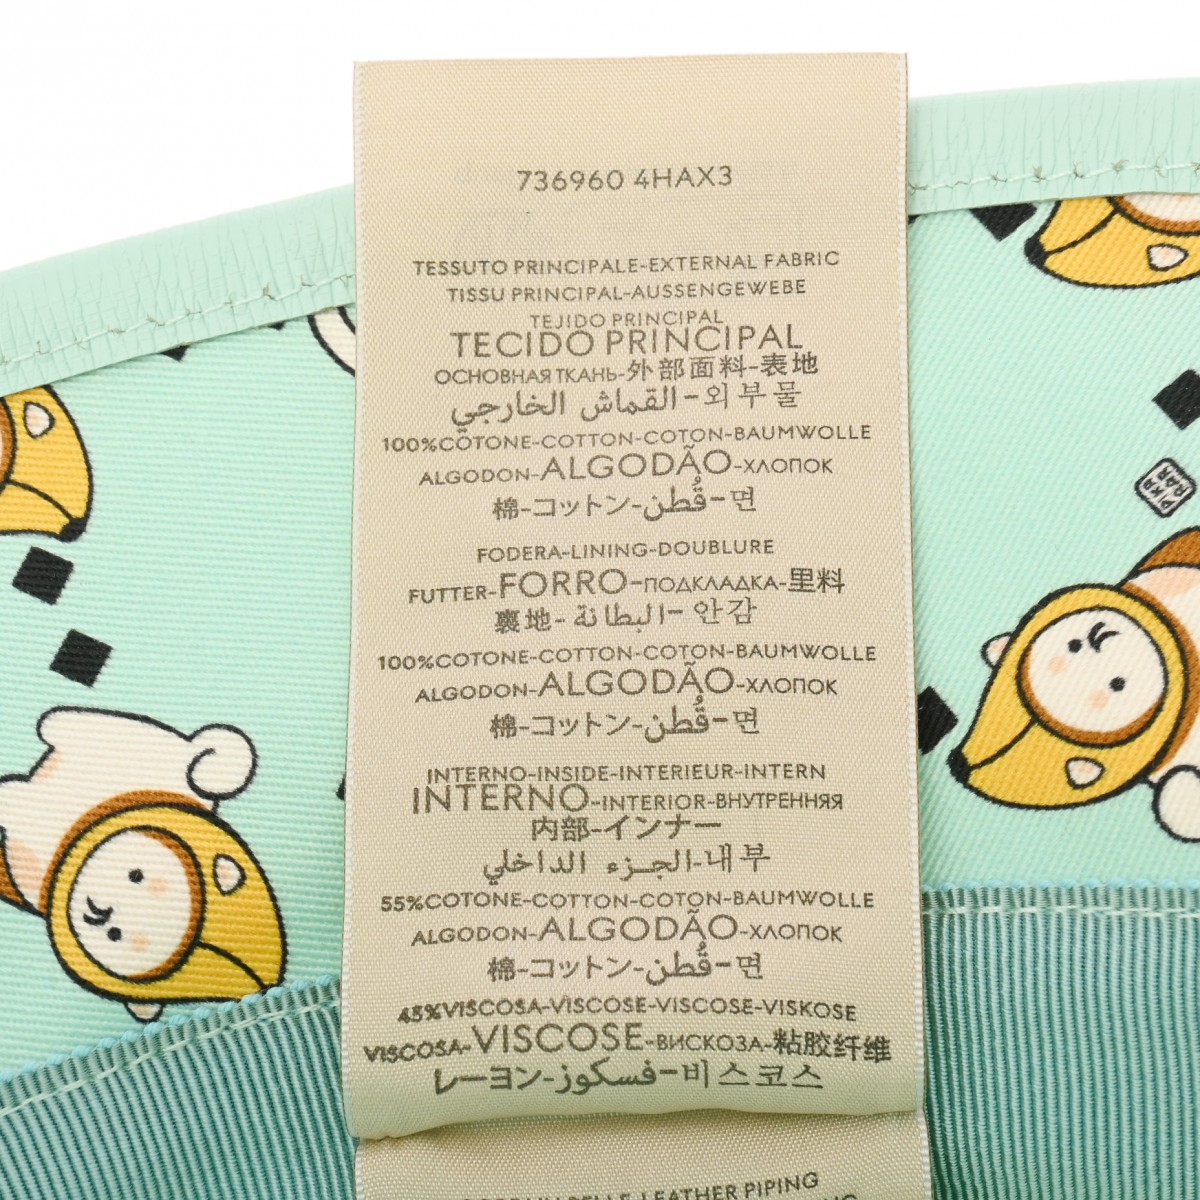 736960 4HAX3
TESSUTO PRINCIPALE-EXTERNAL FABRIC
TISSU PRINCIPAL-AUSSENGEWEBE
TEJIDO PRINCIPAL
TECIDO PRINCIPAL
ОСНОВНАЯ ТКАНЬ-外部面料-表地
القماش الخارجي-외부물
100%COTONE-COTTON-COTON-BAUMWOLLE
ALGODON-ALGODÃO-ХЛОПОК
棉-コットン-قُطن-면
FODERA-LINING-DOUBLURE
FUTTER-FORRO-ПОДКЛАДКА-里料
裏地-البطانة-안감
100%COTONE-COTTON-COTON-BAUMWOLLE
ALGODON-ALGODÃO-ХЛОПОК
棉-コットン-قُطن-면
INTERNO-INSIDE-INTERIEUR-INTERN
INTERNO-INTERIOR-ВНУТРЕННЯЯ
内部-インナー
الجزء الداخلي-내부
55%COTONE-COTTON-COTON-BAUMWOLLE
ALGODON-ALGODÃO-ХЛОПОК
棉-コットン-قُطن-면
45%VISCOSA-VISCOSE-VISCOSE-VISKOSE
VISCOSA-VISCOSE-ВИСКОЗА-粘胶纤维
レーヨン-فسكوز-비스코스
PELLE-LEATHER PIPING
PIKA
RAR